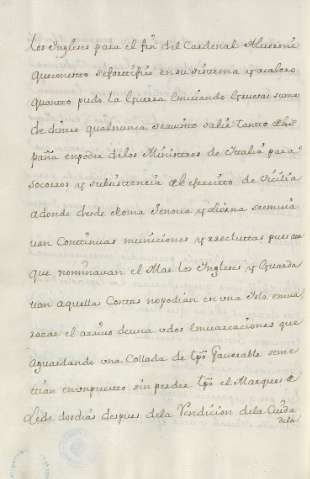 los Ingleses para el fin del Cardenal Alveroni
que
en su sistema y acaloro
quanto pudo la Guerra embiando gruesas sumas
de dinero que nunca salio tanto de Es
paña en poder de los Ministros de Italia para
socorros y subsistencia del exercito de Sicilia
adonde desde Roma Genova y Liorna se embia
van continuas municiones y reclutas pues aun
que dominavan el Mar los Ingleses y Guarda
van aquellas Costas no podian en una Isla emba
razar el arrivo de una u dos embarcaciones que
aguardando una Collada de tpo favorable se me
tian en un puerto sin perder tpo el Marques de
Lede dos dias despues de la Rendicion de la Ciuda
dela